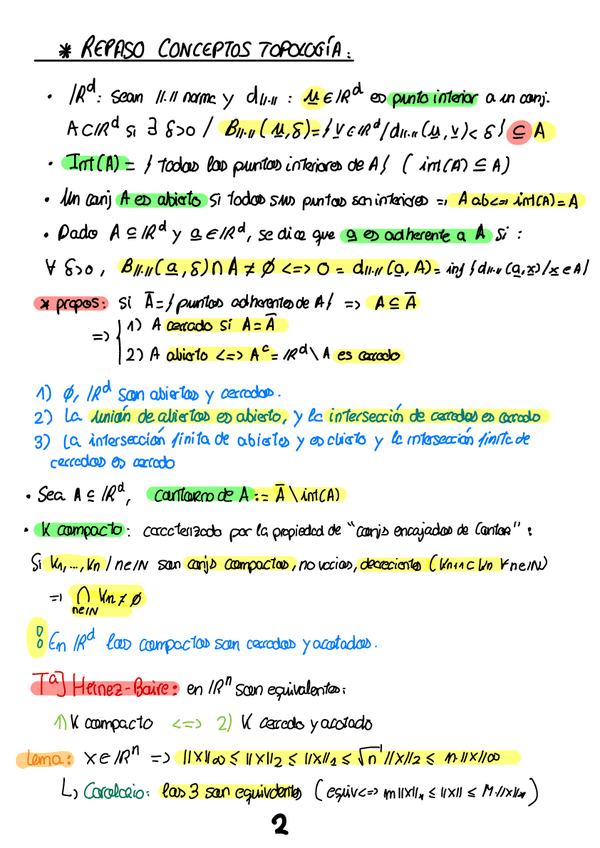 * REPASO CONCEPTOS TOPOLOGÍA:
· ℝᵈ: Sean ||.|| norma y d||.|| : u ∈ ℝᵈ es punto interior a un conj.
A ⊂ ℝᵈ si ∃ δ>0 / B||.||(u,δ) = { v ∈ ℝᵈ / d||.||(u,v) < δ } ⊆ A
· Int(A) = { todos los puntos interiores de A } ( int(A) ⊆ A )
· Un conj A es abierto si todos sus puntos son interiores => A ab <=> int(A) = A
· Dado A ⊆ ℝᵈ y a ∈ ℝᵈ, se dice que a es adherente a A si :
∀ δ>0, B||.||(a, δ) ∩ A ≠ ∅ <=> 0 = d||.||(a, A) = inf { d||.||(a,x) / x ∈ A }
* propos: Si Ā = { puntos adherentes de A } => A ⊆ Ā
=> { 1) A cerrado si A = Ā
2) A abierto <=> Aᶜ = ℝᵈ \ A es cerrado
1) ∅, ℝᵈ son abiertos y cerrados.
2) La unión de abiertos es abierto, y la intersección de cerrados es cerrado
3) La intersección finita de abiertos y es abierto y la intersección finita de
cerrados es cerrado
· Sea A ⊆ ℝᵈ, contorno de A := Ā \ int(A)
· K compacto: caracterizado por la propiedad de "conjs encajados de Cantor" :
Si K₁, ..., Kn / n∈ℕ son conjs compactos, no vacios, decrecientes ( Kn+1 ⊂ Kn ∀ n∈ℕ )
=> ⋂ n∈ℕ Kn ≠ ∅
En ℝᵈ los compactos son cerrados y acotados.
Tª] Heinez-Baire: en ℝⁿ son equivalentes:
1) K compacto <=> 2) K cerrado y acotado
Lema: x ∈ ℝⁿ => ||x||∞ ≤ ||x||₂ ≤ ||x||₁ ≤ √n ||x||₂ ≤ n ||x||∞
↳ Corolario: las 3 son equivalentes ( equiv <=> m||x||* ≤ ||x|| ≤ M·||x||* )
2